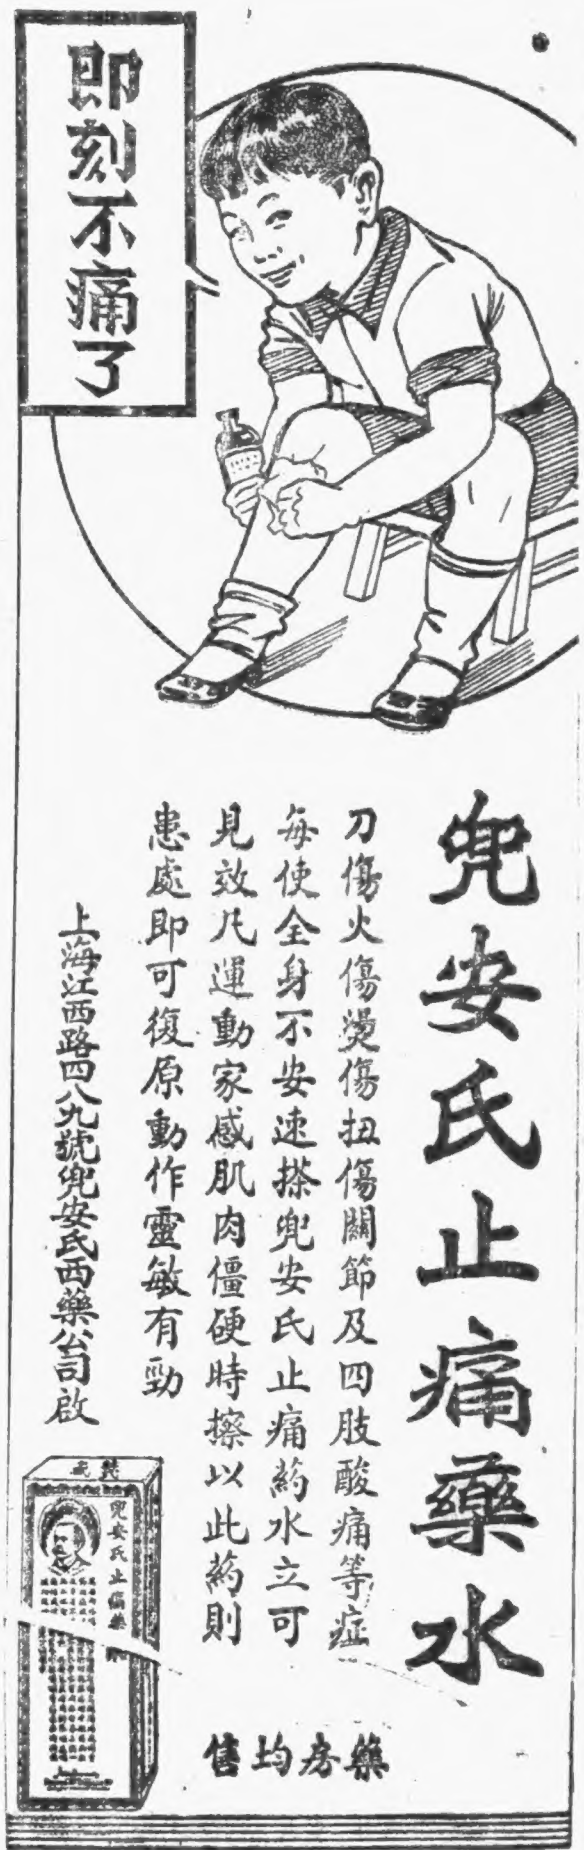 即刻不痛了
兜安氏止痛藥水
刀傷火傷燙傷扭傷關節及四肢酸痛等症
每使全身不安速搽兜安氏止痛葯水立可
見效凡運動家感肌肉僵硬時擦以此葯則
患處即可復原動作靈敏有勁
上海江西路四八九號兜安氏西藥公司啟
兜安氏止痛藥
藥房均售